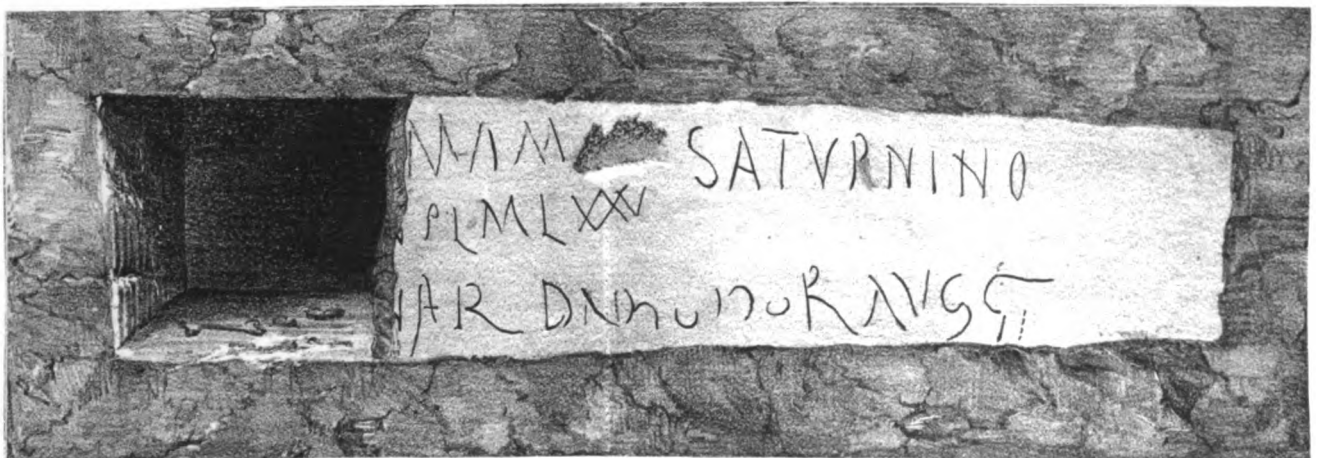 MAM SATVRNINO
PLMLXXV
IAR DNhONORAVGG